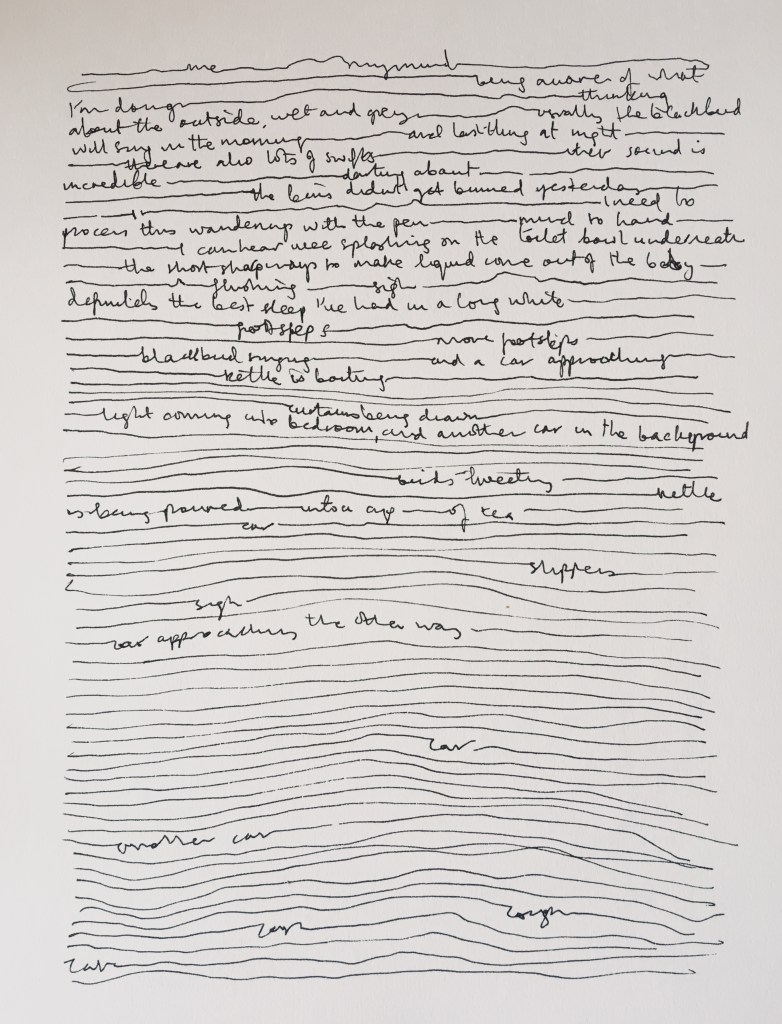 me my mind
being aware of what
I'm doing thinking
about the outside, wet and grey usually the blackbird
will sing in the morning and last thing at night
there are also lots of swifts their sound is
incredible darting about
the bins didn't get binned yesterday
I need to
process this wandering with the pen mind to hand
I can hear wee splashing on the toilet bowl underneath
the short sharp ways to make liquid come out of the body
flushing sigh
definitely the best sleep I've had in a long while
footsteps
more footsteps
blackbird singing and a car approaching
kettle is boiling
curtains being drawn
light coming into bedroom, and another car in the background
birds tweeting
kettle
is being poured into a cup of tea
car
slippers
sigh
car approaching the other way
car
another car
cough
cough
car